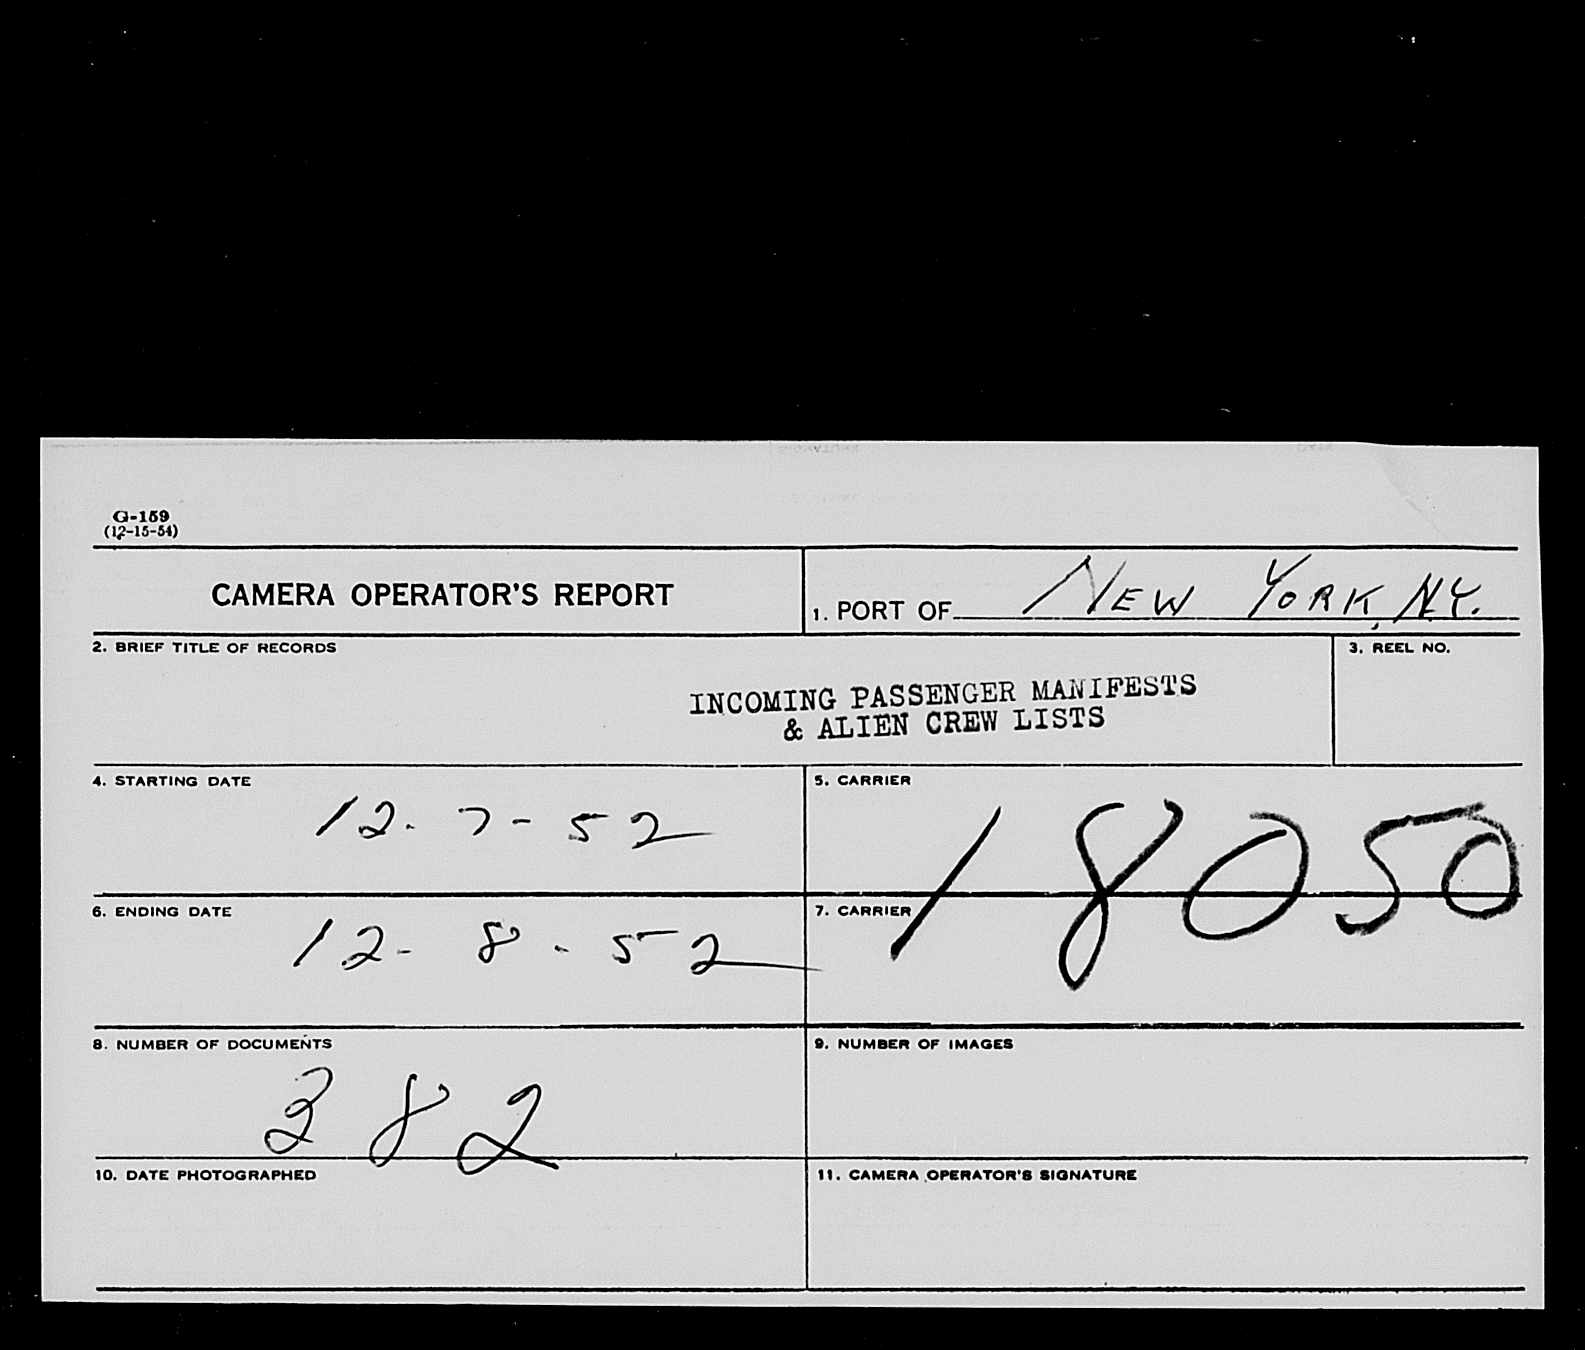 G-159
(12-15-54)
CAMERA OPERATOR'S REPORT
1. PORT OF NEW YORK, N.Y.
2. BRIEF TITLE OF RECORDS
INCOMING PASSENGER MANIFESTS
& ALIEN CREW LISTS
3. REEL NO.
4. STARTING DATE
12-7-52
5. CARRIER
18050
6. ENDING DATE
12-8-52
7. CARRIER
8. NUMBER OF DOCUMENTS
382
9. NUMBER OF IMAGES
10. DATE PHOTOGRAPHED
11. CAMERA OPERATOR'S SIGNATURE